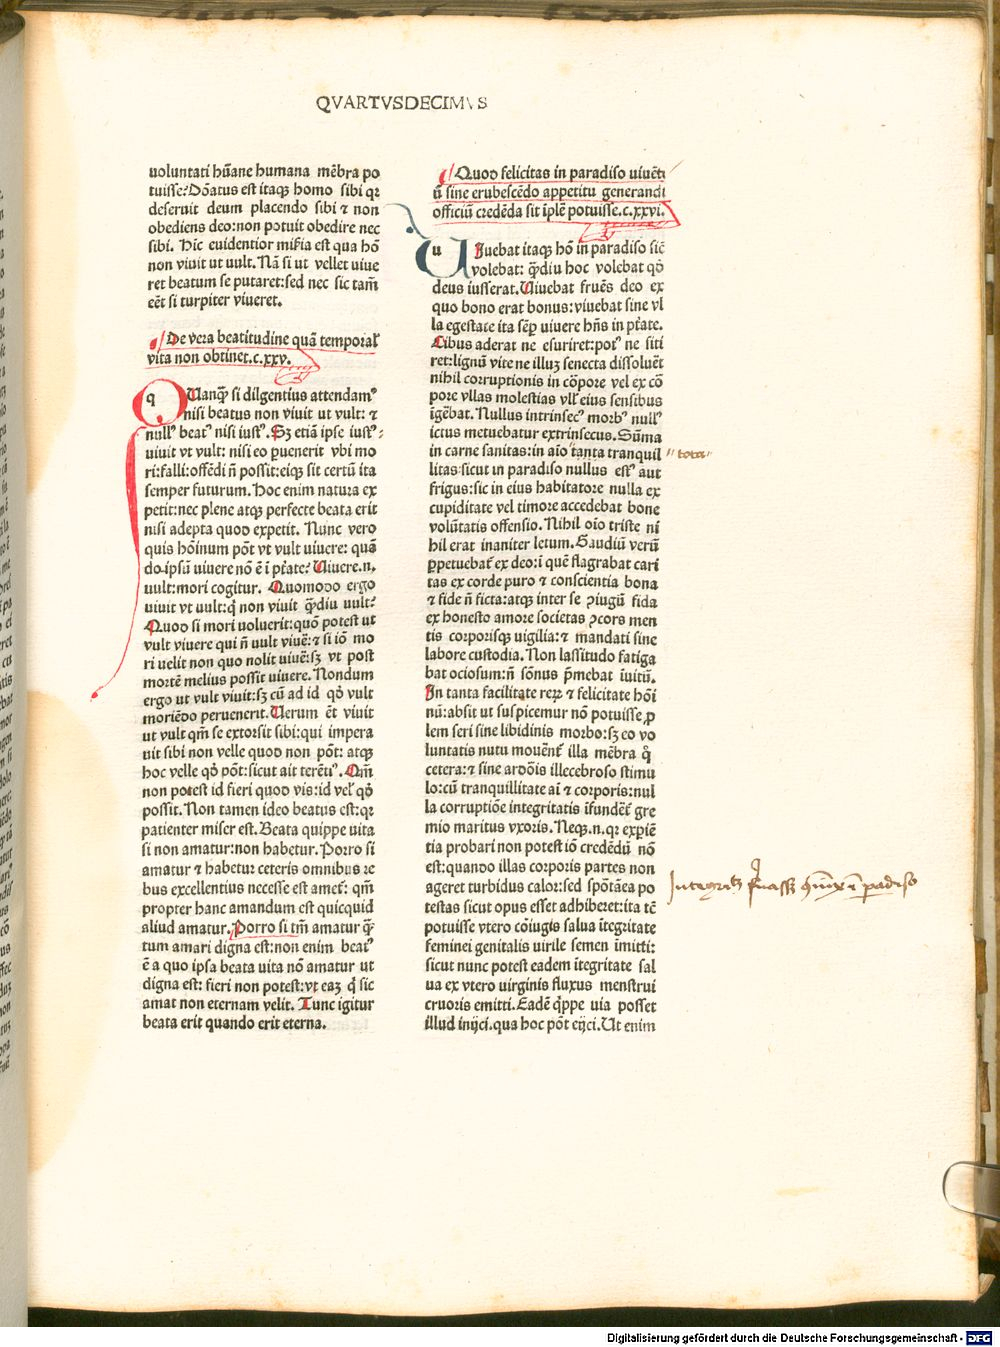 QVARTVSDECIMVS
uoluntati hūane humana mēbra po
tuisse? Dōatus est itaqꝫ homo sibi qꝛ
deseruit deum placendo sibi ⁊ non
obediens deo: non potuit obedire nec
sibi. Hic euidentior mik̄ia est qua hō
non viuit ut uult. Nā si ut vellet uiue
ret beatum se putaret: sed nec sic tam̄
eēt si turpiter viueret.
De vera beatitudine quā temporal̛
vita non obtinet. c. xxv.
QUanq̄ꝫ si dilgentius attendam᷒
nisi beatus non viuit ut vult: ⁊
null᷒ beat᷒ nisi iust᷒. Sꝫ etiā ipse iust᷒:
uiuit vt vult: nisi eo ꝑuenerit vbi mo
ri: falli: offēdi n̄ possit: eiqꝫ sit certū ita
semper futurum. Hoc enim natura ex
petit: nec plene atqꝫ perfecte beata erit
nisi adepta quod expetit. Nunc vero
quis hōinum pōt vt vult uiuere: quā
do ipsū uiuere nō ē ī ptāte? Uiuere .n.
uult: mori cogitur. Quomodo ergo
uiuit vt uult: q̄ non viuit q̄ꝫdiu uult?
Quod si mori voluerit: quō potest ut
vult vivere qui n̄ uult viuē: ⁊ si iō mo
ri uelit non quo nolit viuē: sꝫ vt post
mortē melius possit uiuere. Nondum
ergo ut vult viuit: sꝫ cū ad id qō vult
moriēdo peruenerit. Uerum ēt viuit
ut vult qm̄ se extorsit sibi: qui impera
uit sibi non velle quod non pōt: atqꝫ
hoc velle qō pōt: sicut ait terēti᷒. Qm̄
non potest id fieri quod vis: id vel̛ qō
possit. Non tamen ideo beatus est: qꝛ
patienter miser est. Beata quippe uita
si non amatur: non habetur. Porro si
amatur ⁊ habetur ceteris omnibus re
bus excellentius necesse est amet̄: qm̄
propter hanc amandum est quicquid
aliud amatur. Porro si tm̄ amatur q̄ꝫ
tum amari digna est: non enim beat᷒
ē a quo ipsa beata uita nō amatur ut
digna est: fieri non potest: vt eaꝫ q̄ sic
amat non eternam velit. Tunc igitur
beata erit quando erit eterna.
Quod felicitas in paradiso uiuēti
ū sine erubescēdo appetitu generandi
officiū credēda sit īplē potuisse. c. xxvi.
UIuebat itaqꝫ hō in paradiso sic̄
volebat: q̄ꝫdiu hoc volebat qō
deus iusserat. Uiuebat fruēs deo ex
quo bono erat bonus: viuebat sine vl
la egestate ita sēꝑ uiuere hn̄s in ptāte.
Cibus aderat ne esuriret: pot᷒ ne siti
ret: lignū vite ne illuꝫ senecta dissoluēt
nihil corruptionis in cōpore vel ex cō
pore vllas molestias vll᷒ eius sensibus
īgēbat. Nullus intrinsec᷒ morb᷒ null᷒
ictus metuebatur extrinsecus. Sūma
in carne sanitas: in aīo tanta tranquil
toта
litas. sicut in paradiso nullus est᷒ aut
frigus: sic in eius habitatore nulla ex
cupiditate vel timore accedebat bone
volūtatis offensio. Nihil oīo triste ni
hil erat inaniter letum. Gaudiū verū
ꝑpetuebat̄ ex deo: ī quē flagrabat cari
tas ex corde puro ⁊ conscientia bona
⁊ fide n̄ ficta: atqꝫ inter se ꝯiugū fida
ex honesto amore societas ꝯcors men
tis corporisqꝫ uigilia: ⁊ mandati sine
labore custodia. Non lassitudo fatiga
bat ociosum: n̄ sōnus p̄mebat īuitū.
In tanta facilitate reꝝ ⁊ felicitate hōi
nū: absit ut suspicemur nō potuisse ꝓ
lem seri sine libidinis morbo: sꝫ eo vo
luntatis nutu mouēnt̄ illa mēbra q̄
cetera: ⁊ sine ardōis illecebroso stimu
lo: cū tranquillitate aī ⁊ corporis: nul
la corruptiōe integritatis īfundēt̄ gre
mio maritus vxoris. Neqꝫ .n. qꝛ expiē
tia probari non potest iō credēdū nō
est: quando illas corporis partes non
ageret turbidus calor: sed spōtāea po
testas sicut opus esset adhiberet: ita tc̄
potuisse vtero cōiugis salua ītegritate
feminei genitalis uirile semen īmitti:
sicut nunc potest eadem ītegritate sal
ua ex vtero uirginis fluxus menstrui
cruoris emitti. Eadē q̄ppe uia posset
illud inijci. qua hoc pōt eijci. Ut enim
paradiso
Digitalisierung gefördert durch die Deutsche Forschungsgemeinschaft - DFG